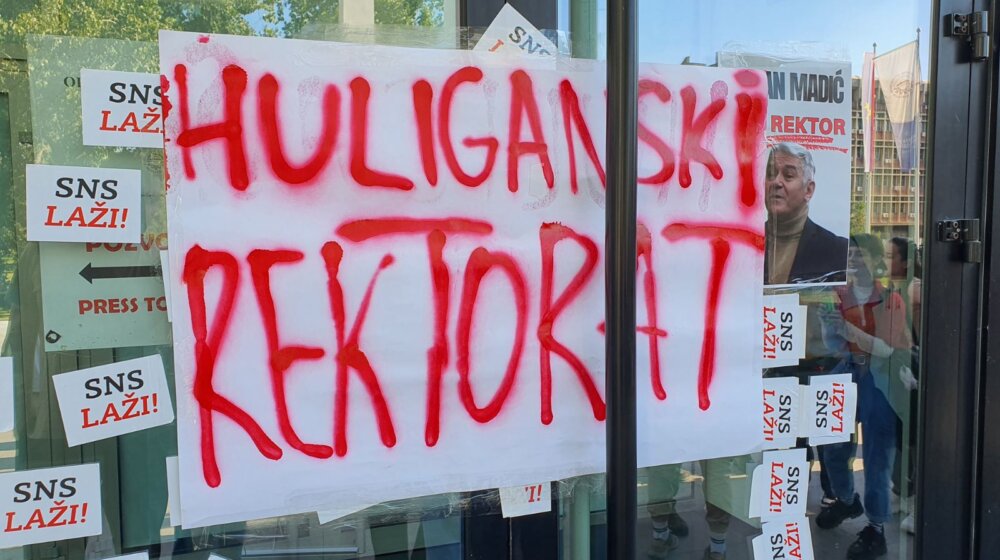 HULIGANSKI
REKTORAT
SNS
LAŽI!
SNS
LAŽI!
SNS
LAŽI!
SNS
LAŽI!
SNS
PRESS TO
AN MADIĆ
REKTOR
SNS
LAŽI!
SNS
LAŽI!
SNS
LAŽI!
SNS
LAŽI!
SNS
LAŽI!